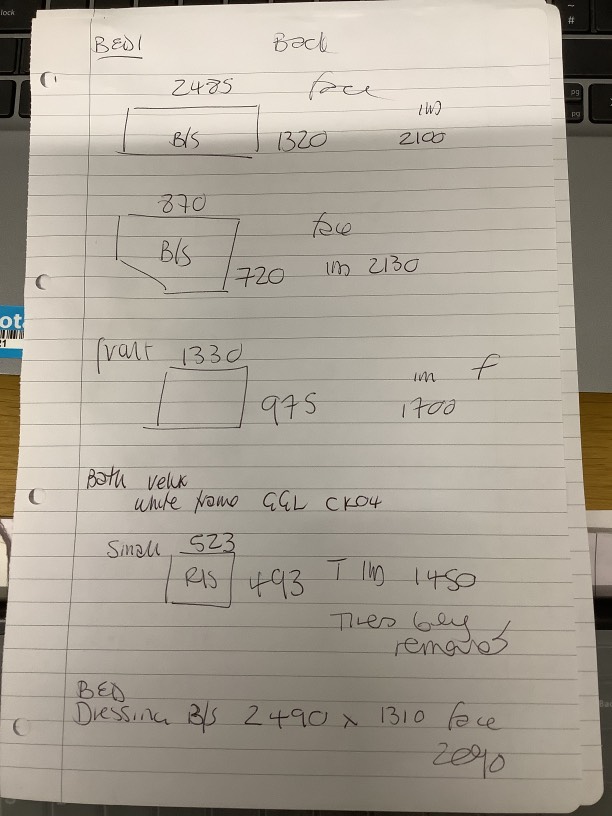 BED1 Back
2485 face
B/S 1320 IM 2100
870
B/S face
720 IM 2130
front 1330
975 IM f
1700
Bath velux
white frame GGL CK04
Small 523
R/S 493 T IM 1450
Tiles being
removed
BED
Dressing B/S 2490 x 1310 face
2090
lock
ota
21
pg
pg
#